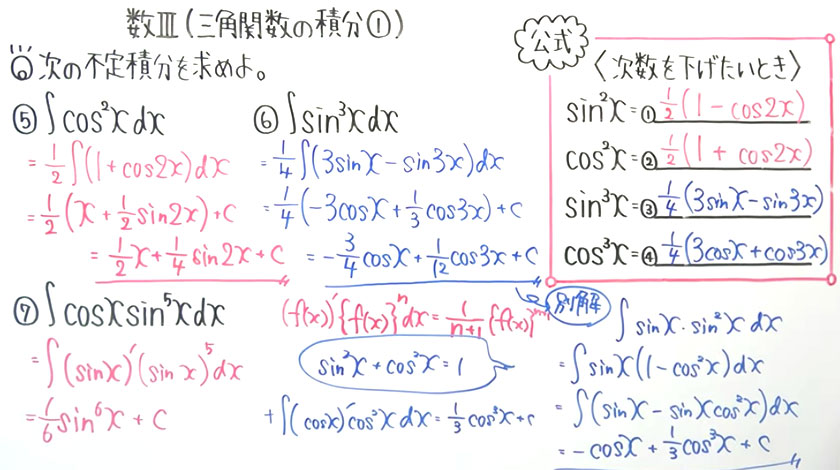 数Ⅲ(三角関数の積分①)
次の不定積分を求めよ。
⑤ ∫cos²x dx
= 1/2 ∫(1+cos2x)dx
= 1/2 (x + 1/2 sin2x) + C
= 1/2 x + 1/4 sin2x + C
⑥ ∫sin³x dx
= 1/4 ∫(3sinx − sin3x)dx
= 1/4 (−3cosx + 1/3 cos3x) + C
= −3/4 cosx + 1/12 cos3x + C
公式
〈次数を下げたいとき〉
sin²x = ① 1/2 (1 − cos2x)
cos²x = ② 1/2 (1 + cos2x)
sin³x = ③ 1/4 (3sinx − sin3x)
cos³x = ④ 1/4 (3cosx + cos3x)
⑦ ∫cosx sin⁵x dx
= ∫(sinx)′(sinx)⁵dx
= 1/6 sin⁶x + C
(f(x))′{f(x)}ⁿdx = 1/(n+1) {f(x)}ⁿ⁺¹
sin²x + cos²x = 1
+∫(cosx)′cos²x dx = 1/3 cos³x + C
別解
∫sinx・sin²x dx
= ∫sinx(1 − cos²x)dx
= ∫(sinx − sinx cos²x)dx
= −cosx + 1/3 cos³x + C